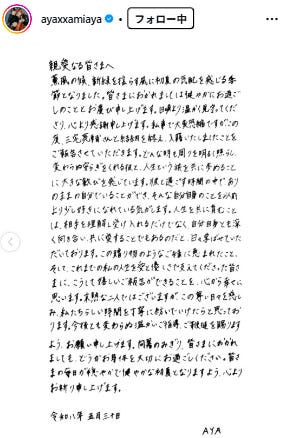 ayaxxamiaya
フォロー中
親愛なる皆さまへ
薫風の候、新緑を揺らす風に初夏の気配を感じる季
節となりました。皆さまにおかれましては健やかにお過ご
しのこととお慶び申し上げます。日頃より温かく見守ってくだ
さり、心より感謝申し上げます。私事で大変恐縮ですが、この
度、三
さんと結婚し
入籍いたしましたことを
ご報告させていただきます。どんな時も周りを明るく照らし、
変わらぬ安らぎをくれる彼と、人生という旅を共に歩めること
に大きな歓びを感じています。彼と過ごす時間の中で、あり
のままの自分でいることができ、そんな自分自身のことを以前
より少し好きになれている気がします。人生を共に営むこと
は、相手を理解し受け入れるだけでなく、自分自身とも深
く向き合い、共に愛することでもあるのだと、日々学ばせていた
だいております。この贈り物のようなご縁に恵まれたこと、
そして、これまでの私の人生を愛と優しさで支えてくださった皆さ
まに、こうして嬉しいご報告ができることを、心から幸せに
思います。未熟な二人ではございますが、この尊い日々を慈し
み、私たちらしい時間を丁寧に紡いでいけたらと思ってお
ります。今後とも変わらぬ温かいご指導、ご鞭撻を賜ります
よう、お願い申し上げます。
皆さまにおかれ
ましても、どうかお身体を大切にお過ごしください。皆さ
まの毎日が穏やかで健やかな初夏となりますよう、心より
お祈り申し上げます。
令和八年 五月三十日
AYA